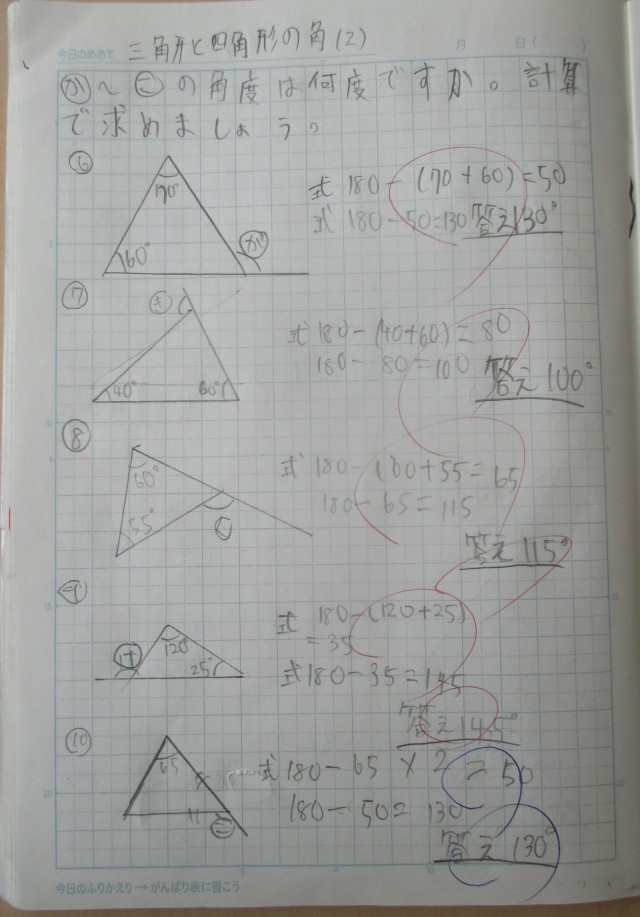 今日のめあて 三角形と四角形の角(2) 月 日( )
か~こ の角度は何度ですか。計算
で求めましょう。
⑥
70°
60°
か
式 180-(70+60)=50
式 180-50=130 答え130°
⑦
き
40°
60°
式 180-(40+60)=80
180-80=100
答え100°
⑧
60°
55°
く
式 180-(60+55=65
180-65=115
答え115°
⑨
け
120°
25°
式 180-(120+25)
=35
式 180-35=145
答え145°
⑩
65
こ
式 180-65×2=50
180-50=130
答え130°
今日のふりかえり→がんばり表に書こう